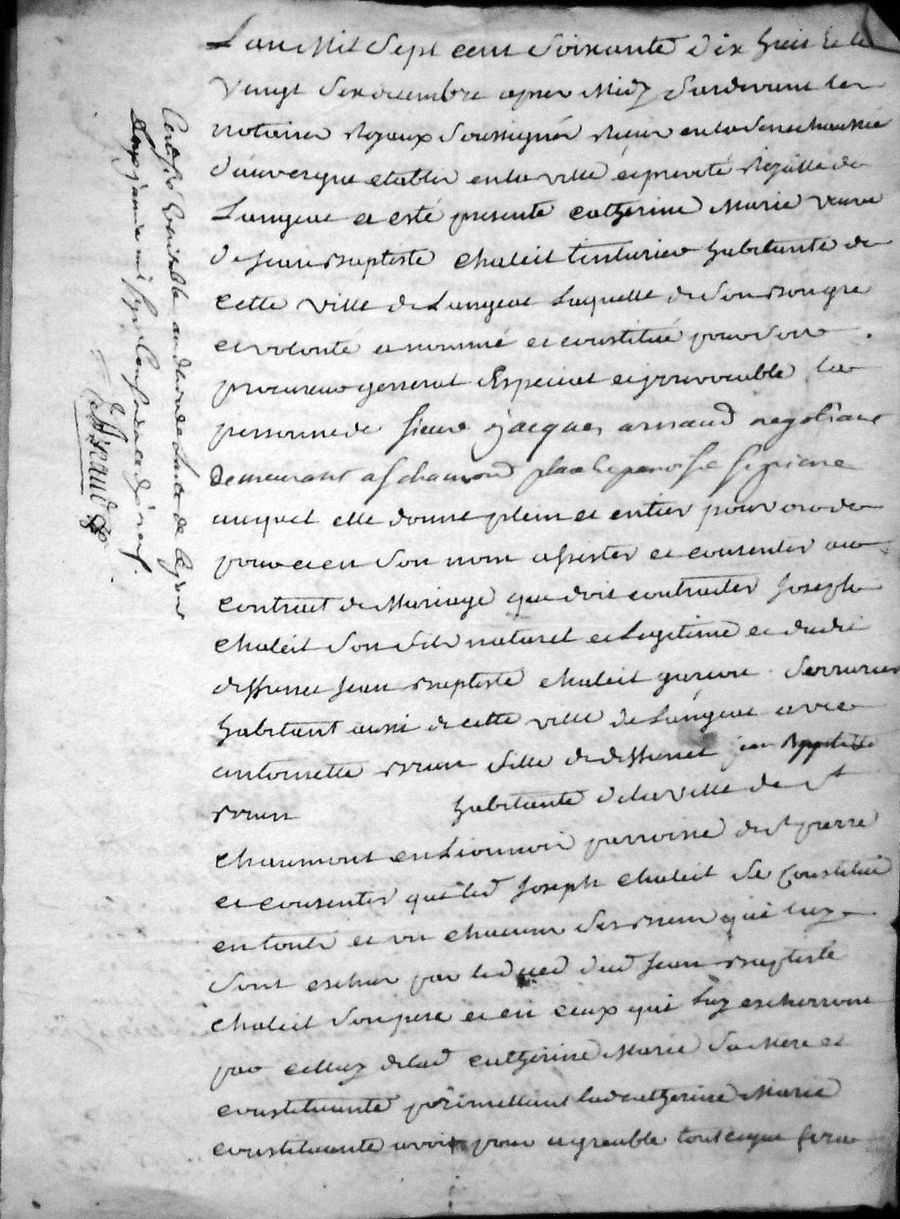 L'an Mil Sept cent Soixante dix huit & le
Vingt Six decembre apres Midy Pardevant les
notaires Royaux Soussignés Reçus en la Senechaussée
d'auvergne etablis en la ville et prevoté Royalle de
Langeac a esté presente Catherine Marie veuve
de Jean Baptiste Chaleil tinturier habitante de
cette ville de Langeac Laquelle de Son bon gré
et volonté a nommé et constitué pour Son
procureur general Special et irrevocable la
personne de Sieur jacques arnaud negotiant
demeurant a St chamond paroisse St pierre
auquel elle donne plein et entier pouvoir de
pour et en Son nom assister et consentir au
contract de Mariage que doit contracter Joseph
Chaleil Son fils naturel et Legitime et dudit
deffunt Jean Baptiste Chaleil garçon Serrurier
habitant aussi de cette ville de Langeac avec
antoinette Brun fille de deffunct jean Baptiste
Brun habitante de la ville de St
Chaumont en Lionnois parroisse de St pierre
et consentir que led Joseph Chaleil Se Constitue
en touts et un chacuns Ses biens qui luy
Sont eschus par le deced dud Jean Baptiste
Chaleil Son pere et en ceux qui Luy escherront
par celluy de lad Catherine Marie Sa Mere et
constituante promettant lad Catherine Marie
constituante avoir pour agreable tout ce que Sera
Certiffié Veritable au de